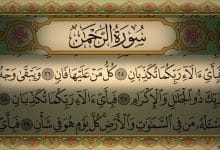 سُورَةُ الرَّحْمَٰن
فَبِأَيِّ ءَالَآءِ رَبِّكُمَا تُكَذِّبَانِ ٢٥ كُلُّ مَنْ عَلَيْهَا فَانٍ ٢٦ وَيَبْقَىٰ وَجْهُ
رَبِّكَ ذُو ٱلْجَلَٰلِ وَٱلْإِكْرَامِ ٢٧ فَبِأَيِّ ءَالَآءِ رَبِّكُمَا تُكَذِّبَانِ ٢٨
يَسْـَٔلُهُۥ مَن فِى ٱلسَّمَٰوَٰتِ وَٱلْأَرْضِ كُلَّ يَوْمٍ هُوَ فِى شَأْنٍ ٢٩ فَبِأَيِّ